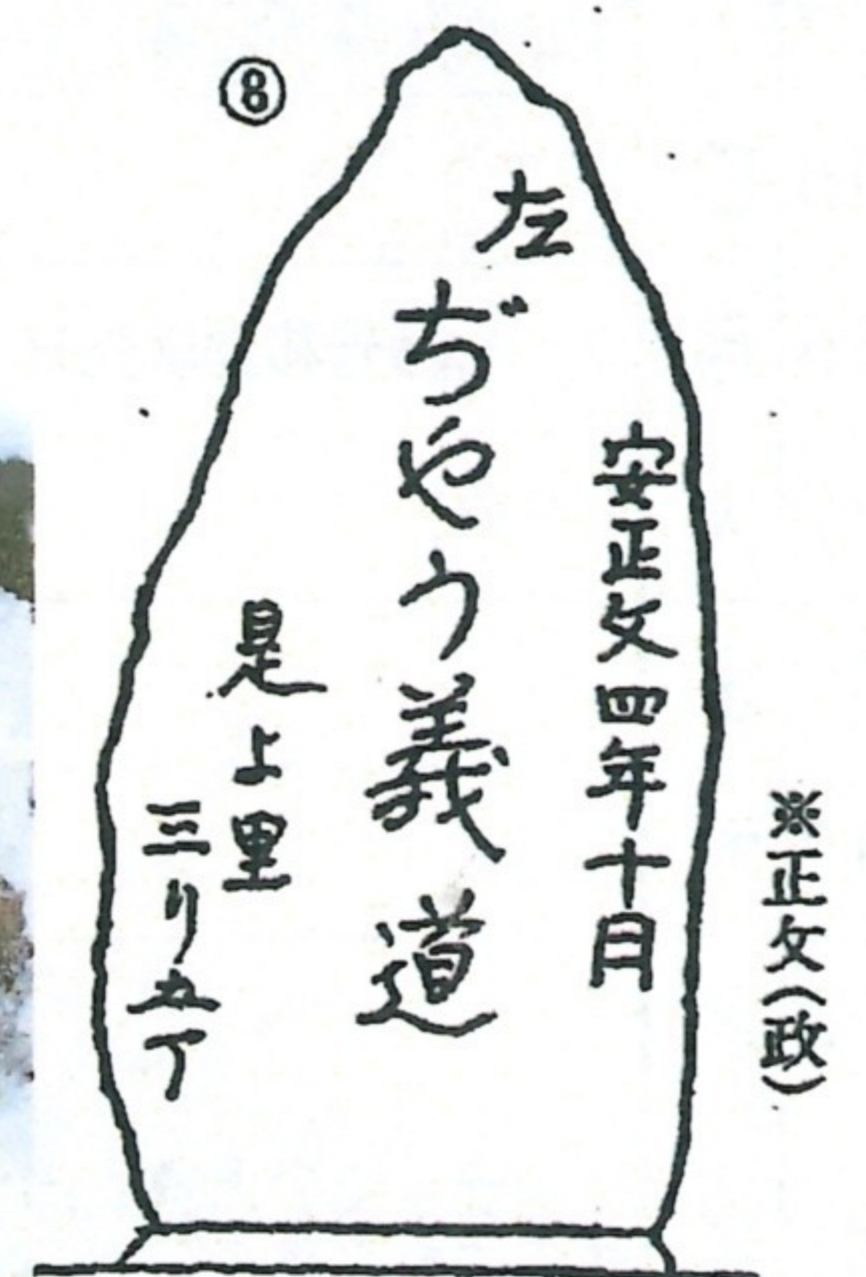 ⑧
※正攵(政)
安正攵四年十月
左ぢやう義道
是よ里
三り五丁